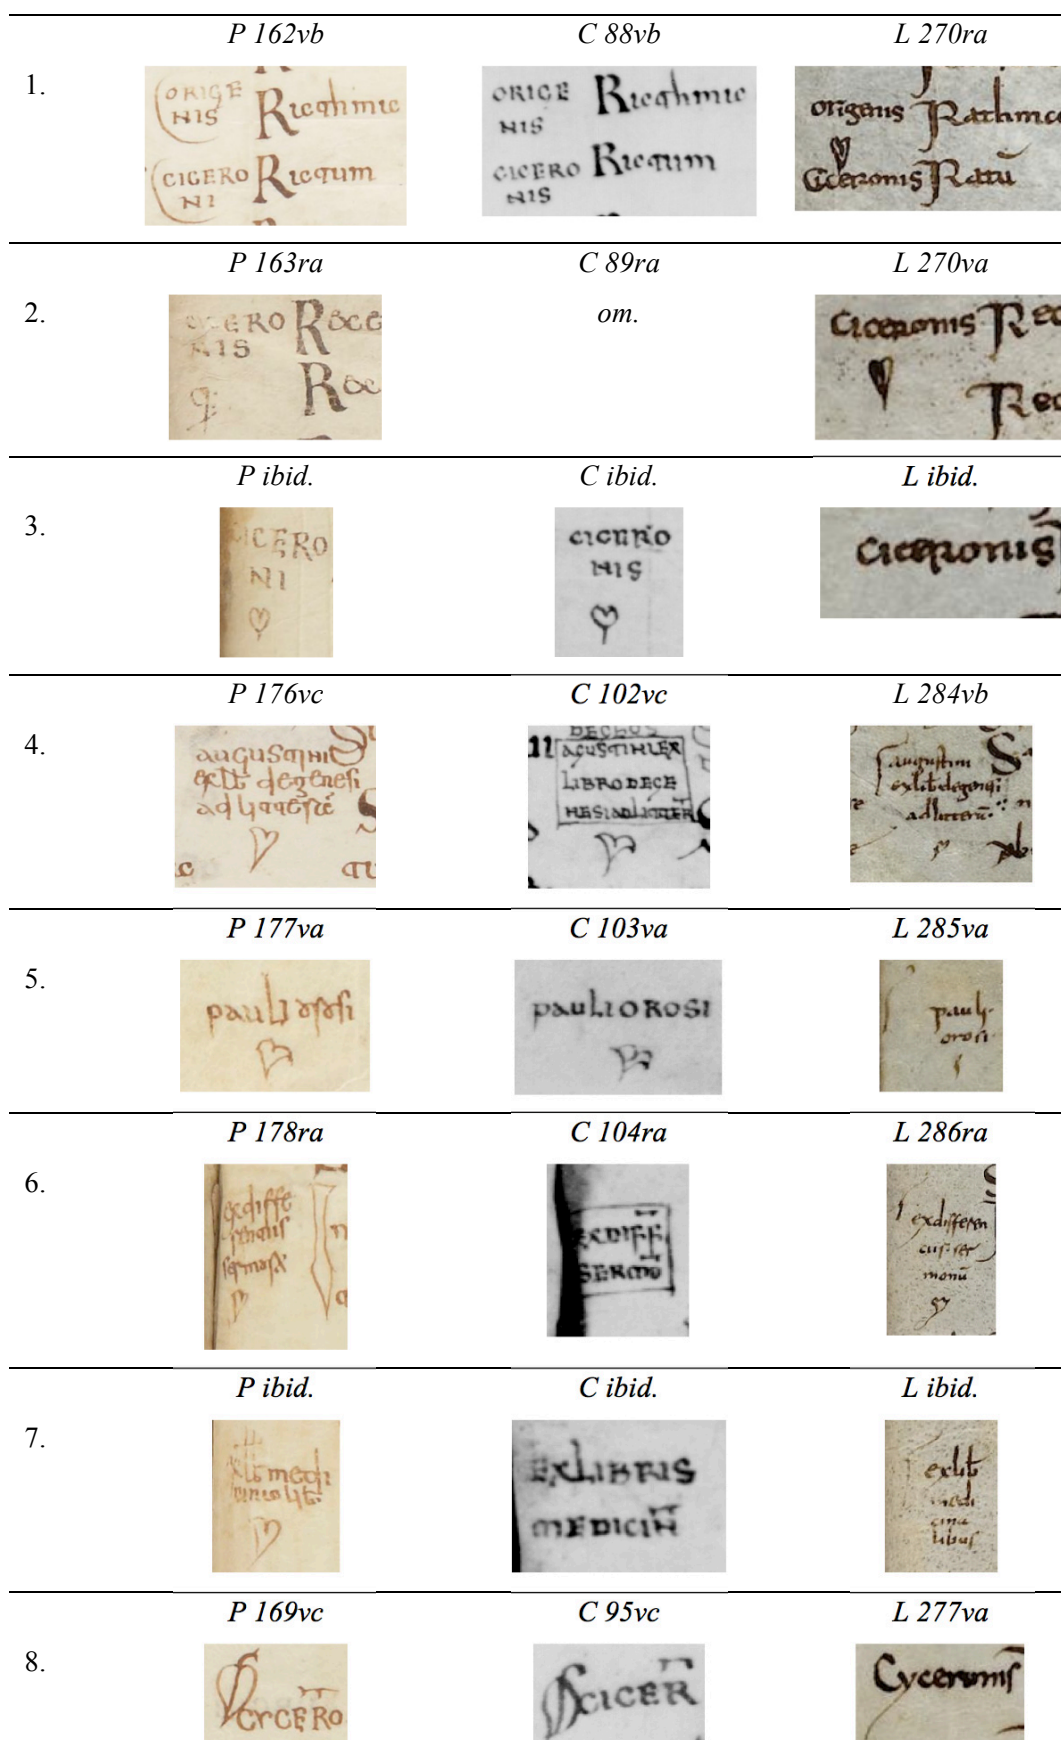 P 162vb C 88vb L 270ra
1.
ORIGE Ricthimic
NIS
CICERO Ricτum
NI
ORIGE Ricthimic
NIS
CICERO Ricτum
NIS
origenis Rathmic
Ciceronis Ratū
P 163ra C 89ra L 270va
2. om.
CICERO
NIS
Ciceronis Rec
Rec
P ibid. C ibid. L ibid.
3.
CICERO
NI
CICERO
NIS
Ciceronis
P 176vc C 102vc L 284vb
4.
augustini
exlib degenesi
ad litterā
AGUSTINI EX
LIBRO DE GE
NESI AD LITTER
augustini
exlib degenesi
ad litterā
P 177va C 103va L 285va
5.
pauli orosi
pauli OROSI
pauli
orosi
P 178ra C 104ra L 286ra
6.
exdiffe
rentiis
EX DIFF
SERMO
exdifferen
ciis ser
monū
P ibid. C ibid. L ibid.
7.
EXLIBRIS
MEDICIN
exlib
medi
cina
libus
P 169vc C 95vc L 277va
8.
CYCERO
CICER
Cyceronis